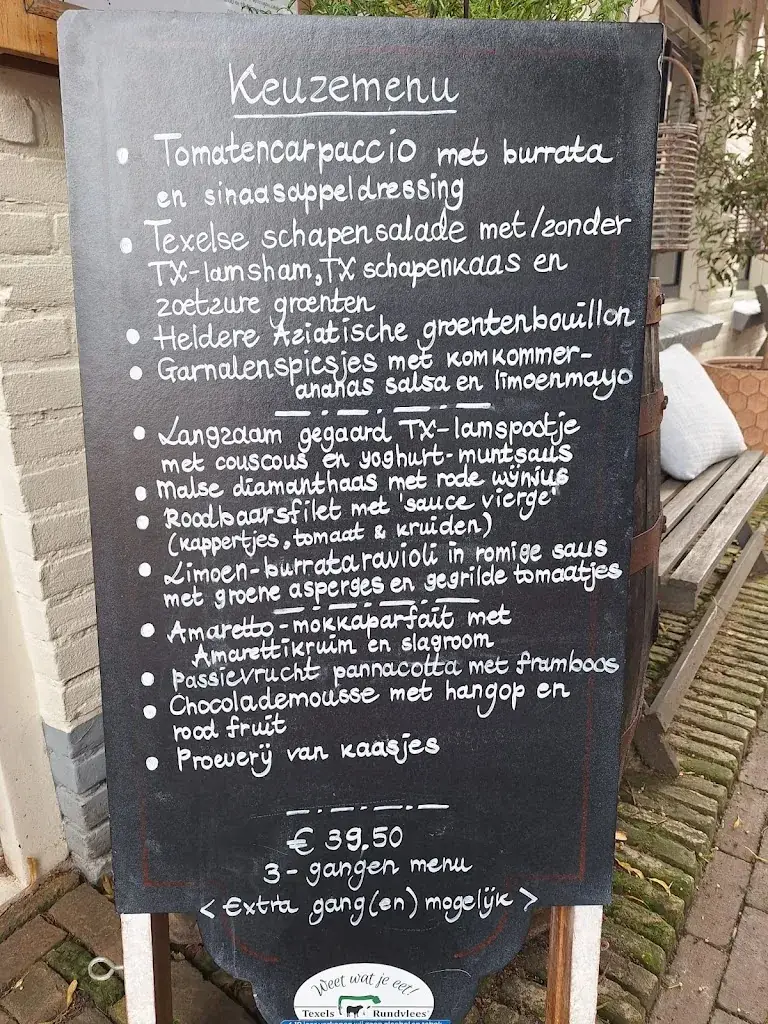 Keuzemenu
• Tomatencarpaccio met burrata
en sinaasappeldressing
• Texelse schapensalade met/zonder
TX-lamsham, TX schapenkaas en
zoetzure groenten
• Heldere Aziatische groentenbouillon
• Garnalenspiesjes met komkommer-
ananas salsa en limoenmayo
• Langzaam gegaard TX-lamspootje
met couscous en yoghurt-muntsaus
• Malse diamanthaas met rode wijnjus
• Roodbaarsfilet met 'sauce vierge'
(kappertjes, tomaat & kruiden)
• Limoen-burrataravioli in romige saus
met groene asperges en gegrilde tomaatjes
• Amaretto-mokkaparfait met
Amarettikruim en slagroom
• Passievrucht pannacotta met framboos
• Chocolademousse met hangop en
rood fruit
• Proeverij van kaasjes
€ 39,50
3-gangen menu
< Extra gang(en) mogelijk >
Weet wat je eet!
Texels Rundvlees